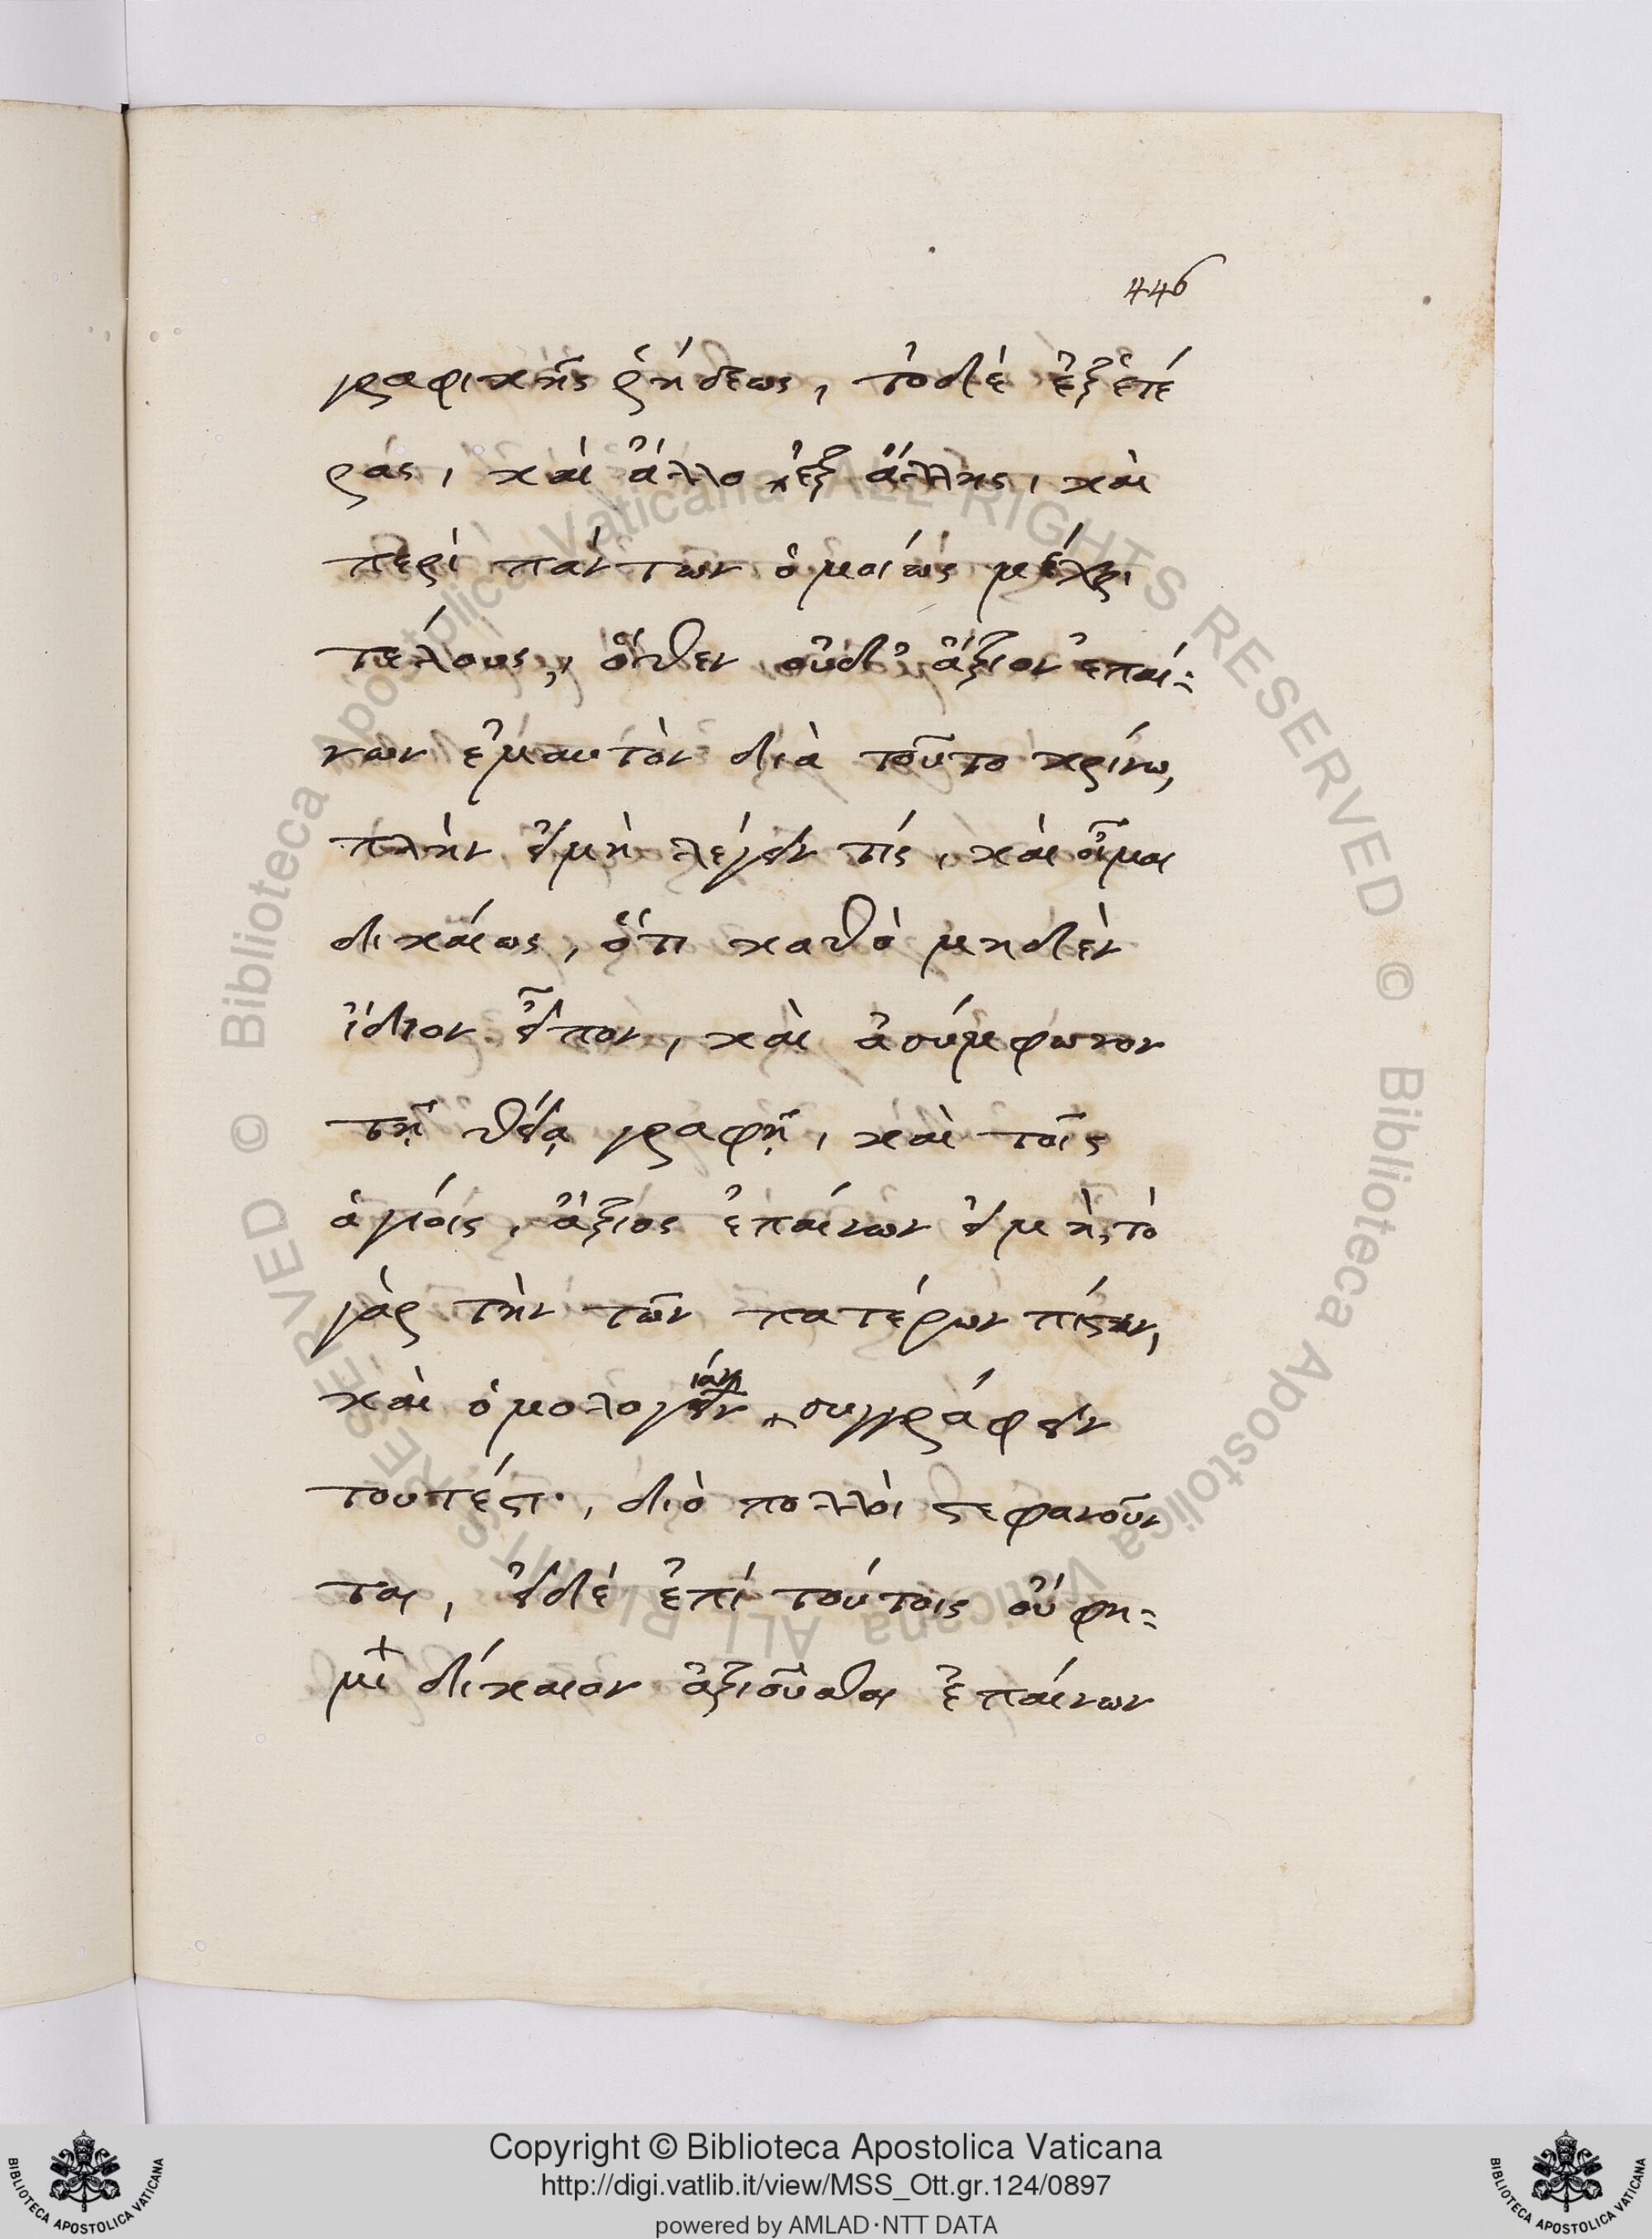 446
γραφικῆς ῥήσεως, τὸ δὲ ἐξ ἑτέ
ρας, καὶ ἄλλο ἐξ ἄλλης, καὶ
περὶ πάντων ὁμοίως μέχρι
τέλους, ὅθεν οὐδ' ἄξιον ἐπαί=
νων ἐμαυτὸν διὰ τοῦτο κρίνω,
πλὴν εἰμὴ λέγειν τίς, καὶ οἶμαι
δικαίως, ὅτι καθὸ μηδὲν
ἴδιον εἶπον, καὶ ἀσύμφωνον
τῇ θείᾳ γραφῇ, καὶ τοῖς
ἁγίοις, ἄξιος ἐπαίνων εἰμὴ, τὸ
γὰρ τὴν τῶν πατέρων πίστιν,
ίαν
καὶ ὁμολογεῖν συγγράφειν
τουτέστι, διὸ πολλοὶ στεφανοῦν
ται, εἰ δὲ ἐπὶ τούτοις οὔ φη=
μι δίκαιον ἀξιοῦσθαι ἐπαίνων
Copyright © Biblioteca Apostolica Vaticana
http://digi.vatlib.it/view/MSS_Ott.gr.124/0897
powered by AMLAD·NTT DATA
© Biblioteca Apostolica Vaticana ALL RIGHTS RESERVED © Biblioteca Apostolica Vaticana ALL RIGHTS RESERVED
BIBLIOTECA APOSTOLICA VATICANA
BIBLIOTECA APOSTOLICA VATICANA